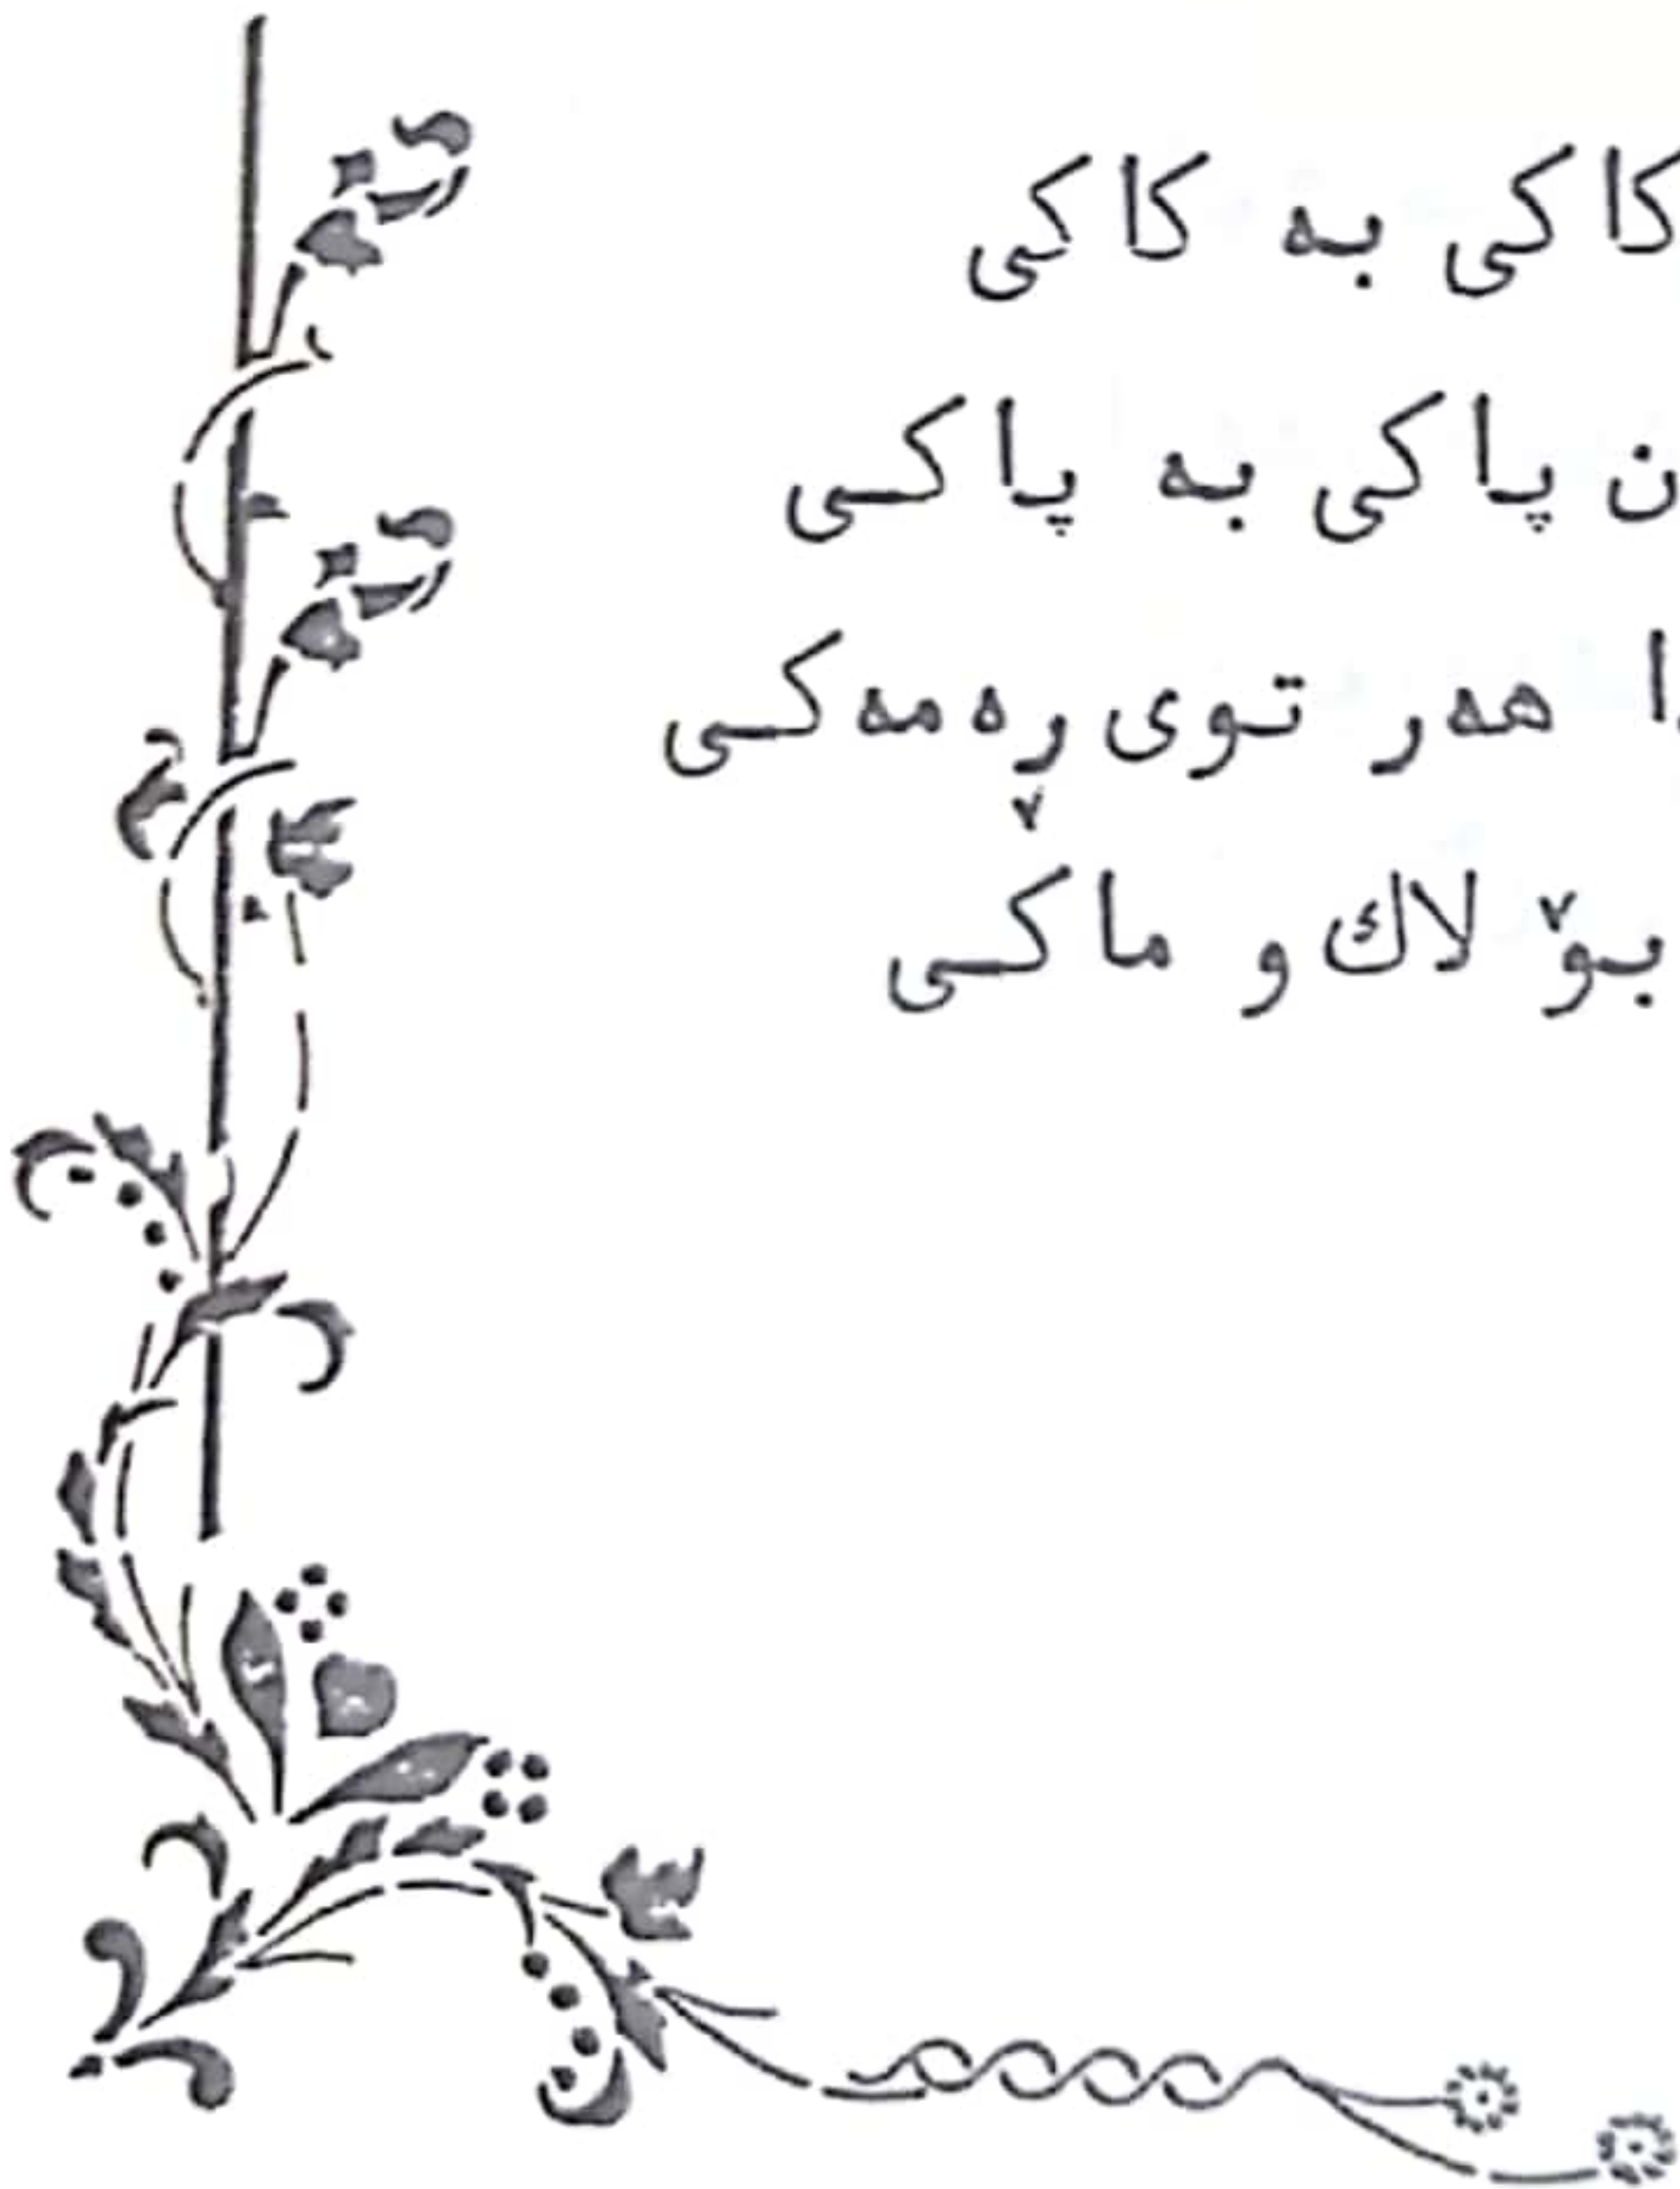 كاكی به كاكی
ن پاكی به پاكی
ا هەر توی ڕەمەكی
بۆ لاك و ماكی